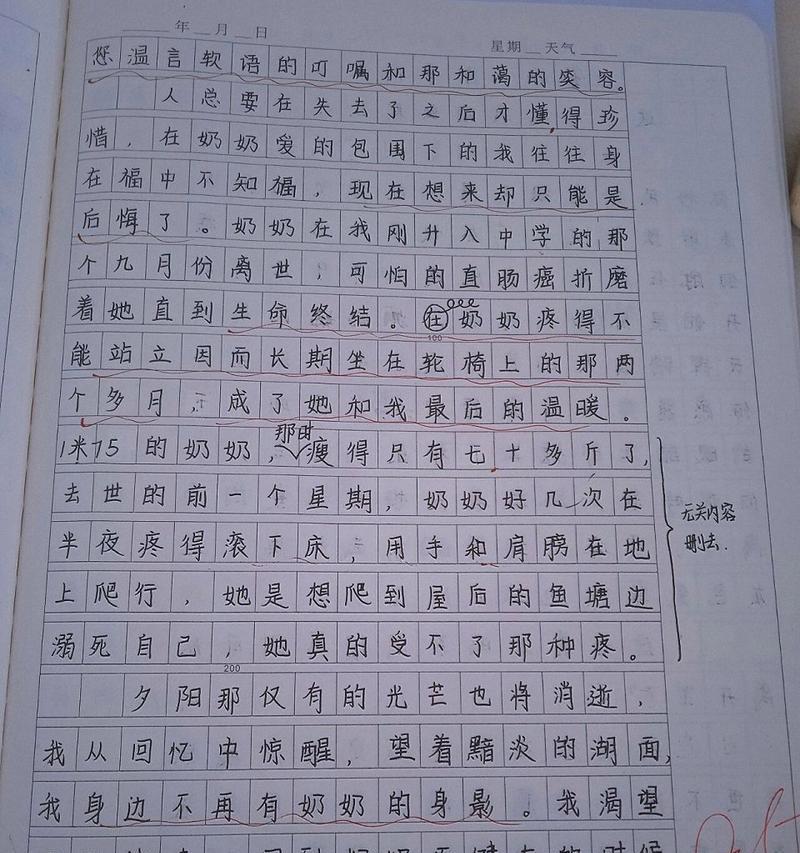 年 月 日
星期 天气
您温言软语的叮嘱和那和蔼的笑容。
人总要在失去了之后才懂得珍
惜，在奶奶爱的包围下的我往往身
在福中不知福，现在想来却只能是
后悔了。奶奶在我刚升入中学的那
个九月份离世，可怕的直肠癌折磨
着她直到生命终结。在奶奶疼得不
100
能站立因而长期坐在轮椅上的那两
个多月，成了她和我最后的温暖。
那时
1米75的奶奶，瘦得只有七十多斤了，
去世的前一个星期，奶奶好几次在
无关内容
删去.
半夜疼得滚下床，用手和肩膀在地
上爬行，她是想爬到屋后的鱼塘边
溺死自己，她真的受不了那种疼。
200
夕阳那仅有的光芒也将消逝，
我从回忆中惊醒，望着黯淡的湖面，
我身边不再有奶奶的身影。我渴望